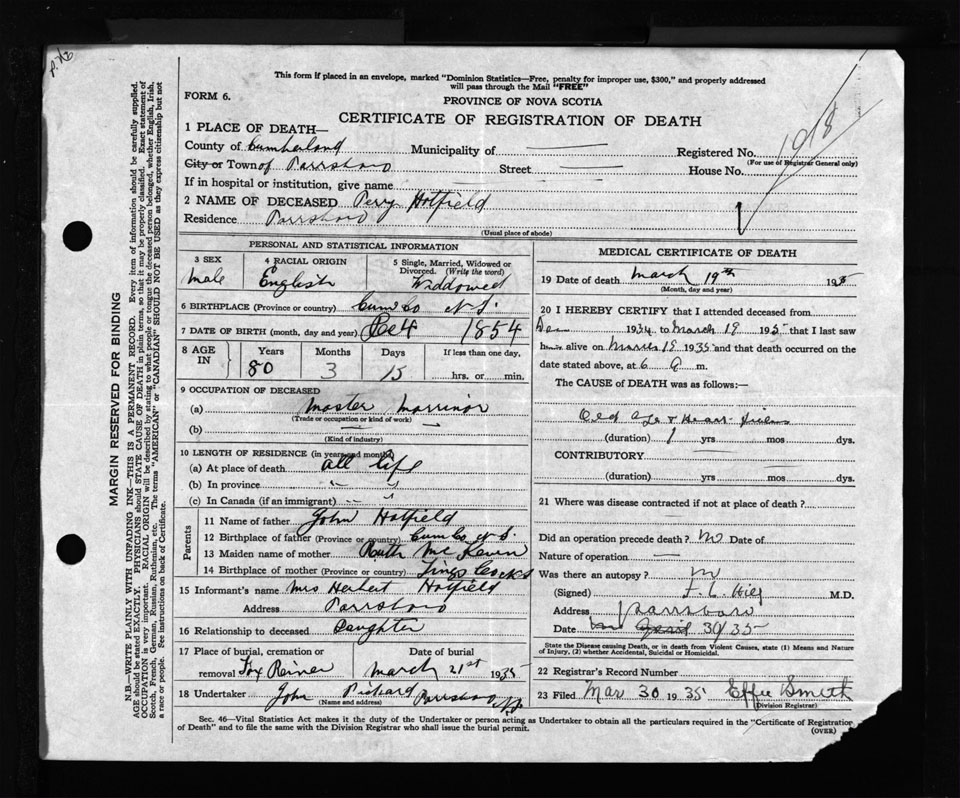 This form if placed in an envelope, marked "Dominion Statistics—Free, penalty for improper use, $300," and properly addressed
will pass through the Mail "FREE"
FORM 6.
PROVINCE OF NOVA SCOTIA
CERTIFICATE OF REGISTRATION OF DEATH
1918
1 PLACE OF DEATH—
County of Cumberland Municipality of — Registered No.
(For use of Registrar General only)
City or Town of Parrsboro Street — House No.
If in hospital or institution, give name —
2 NAME OF DECEASED Perry Hatfield
Residence Parrsboro
(Usual place of abode)
PERSONAL AND STATISTICAL INFORMATION
3 SEX
Male
4 RACIAL ORIGIN
English
5 Single, Married, Widowed or
Divorced. (Write the word)
Widdowed
6 BIRTHPLACE (Province or country) Cum Co N.S.
7 DATE OF BIRTH (month, day and year) Dec 4 1854
8 AGE IN
Years Months Days If less than one day,
80 3 15 hrs. or min.
9 OCCUPATION OF DECEASED
(a) Master Marrinor
(Trade or occupation or kind of work)
(b) —
(Kind of industry)
10 LENGTH OF RESIDENCE (in years and months)
(a) At place of death all life
(b) In province " "
(c) In Canada (if an immigrant) -- "
Parents
11 Name of father John Hatfield
12 Birthplace of father (Province or country) Cum Co N.S.
13 Maiden name of mother Ruth
14 Birthplace of mother (Province or country)
15 Informant's name Mrs Herbert Hatfield
Address Parrsboro
16 Relationship to deceased Daughter
17 Place of burial, cremation or Date of burial
removal Fox River March 21st 1935
18 Undertaker John Pickard Parrsboro N.S.
(Name and address)
MEDICAL CERTIFICATE OF DEATH
19 Date of death March 19th 1935
(Month, day and year)
20 I HEREBY CERTIFY that I attended deceased from
1934 to March 19 1935 that I last saw
him alive on March 18 1935 and that death occurred on
date stated above, at 6 a m.
The CAUSE OF DEATH was as follows:—
Old age & Heart
(duration) 1 yrs mos dys.
CONTRIBUTORY —
(duration) — yrs mos dys.
21 Where was disease contracted if not at place of death?
Did an operation precede death? no Date of —
Nature of operation —
Was there an autopsy? no
(Signed) M.D.
Address Parrsboro
Date Mar April 30/35
State the Disease causing Death, or in death from Violent Causes, state (1) Means and Nature
of Injury, (2) whether Accidental, Suicidal or Homicidal.
22 Registrar's Record Number
23 Filed Mar 30 1935 Effie Smith
(Division Registrar)
Sec. 46—Vital Statistics Act makes it the duty of the Undertaker or person acting as Undertaker to obtain all the particulars required in the "Certificate of Registration
of Death" and to file the same with the Division Registrar who shall issue the burial permit.
(OVER)
MARGIN RESERVED FOR BINDING
N.B.—WRITE PLAINLY WITH UNFADING INK—THIS IS A PERMANENT RECORD. Every item of information should be carefully supplied.
AGE should be stated EXACTLY. PHYSICIANS should STATE CAUSE OF DEATH in plain terms, so that it may be properly classified. Exact statement of
OCCUPATION is very important. RACIAL ORIGIN will be described by stating to what people or tongue the deceased person belonged, whether English, Irish,
Scotch, French, German, Russian, Ruthenian, etc. The terms "AMERICAN" or "CANADIAN" SHOULD NOT BE USED as they express citizenship but not
a race or people. See instructions on back of Certificate.